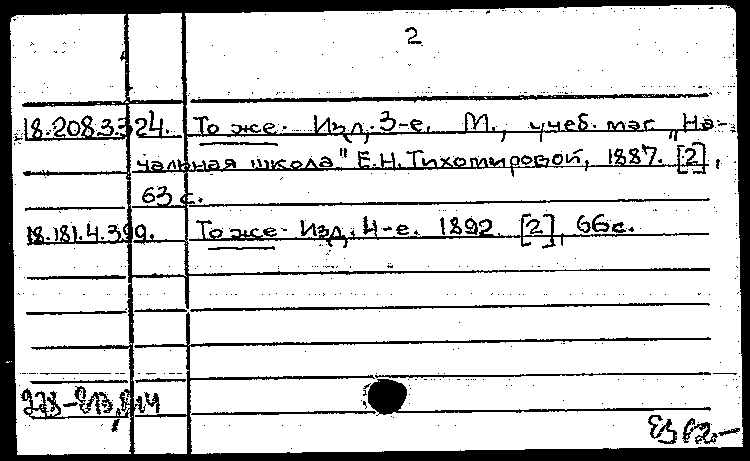 2
18.208.3.324. То же. Изд. 3-е. М., учеб. маг. „На-
чальная школа" Е.Н. Тихомировой, 1887. [2],
63 с.
18.181.4.399. То же. Изд. 4-е. 1892. [2], 66 с.